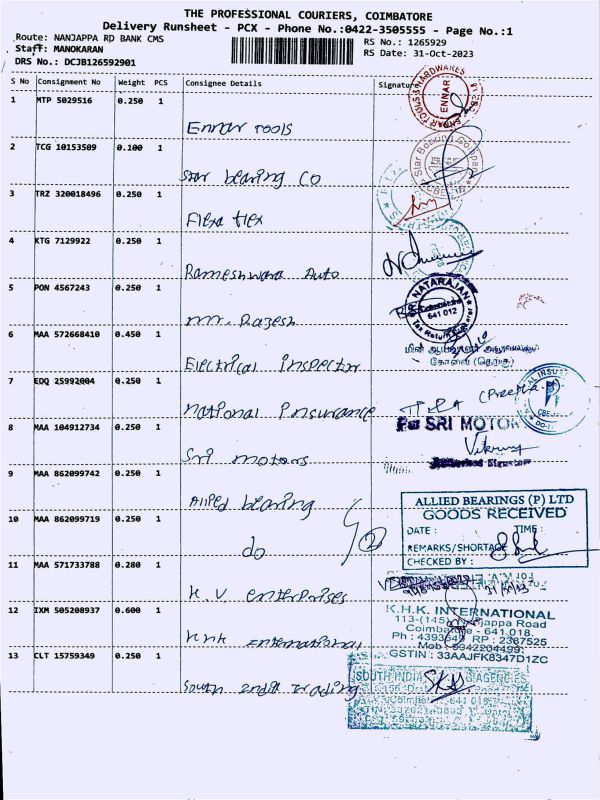 THE PROFESSIONAL COURIERS, COIMBATORE
Delivery Runsheet - PCX - Phone No.:0422-3505555 - Page No.:1
Route: NANJAPPA RD BANK CMS
Staff: MANOKARAN
DRS No.: DCJB126592901
RS No.: 1265929
RS Date: 31-Oct-2023
S No Consignment No Weight PCS Consignee Details Signature
1 MTP 5029516 0.250 1 Ennar Tools
2 TCG 10153509 0.100 1 Star bearing co
3 TRZ 320018496 0.250 1 Flexa flex
4 KTG 7129922 0.250 1 Rameshwara Auto
5 PON 4567243 0.250 1 Mr. Rajesh
6 MAA 572668410 0.450 1 Electrical inspector
7 EDQ 25992004 0.250 1 National Insurance
8 MAA 104912734 0.250 1 Sri motors
9 MAA 862099742 0.250 1 Allied bearing
10 MAA 862099719 0.250 1 do
11 MAA 571733788 0.280 1 K.V. enterprises
12 IXM 505208937 0.600 1 KHK International
13 CLT 15759349 0.250 1 South India trading
ENNAR TOOLS & HARDWARES
Star Bearing Company
R. NATARAJAN
Coimbatore
641 012
Tax Return Preparer
மின் ஆய்வாளர் அலுவலகம்
கோவை (தெற்கு)
(Preetha
For SRI MOTORS
Authorised Signatory
2
ALLIED BEARINGS (P) LTD
GOODS RECEIVED
DATE : TIME :
REMARKS/SHORTAGE
CHECKED BY :
K.H.K. INTERNATIONAL
113-(145), Nanjappa Road
Coimbatore - 641 018.
RP : 2387525
Mob : 9942204499
GSTIN : 33AAJFK8347D1ZC
SOUTH INDIA AGENCIES